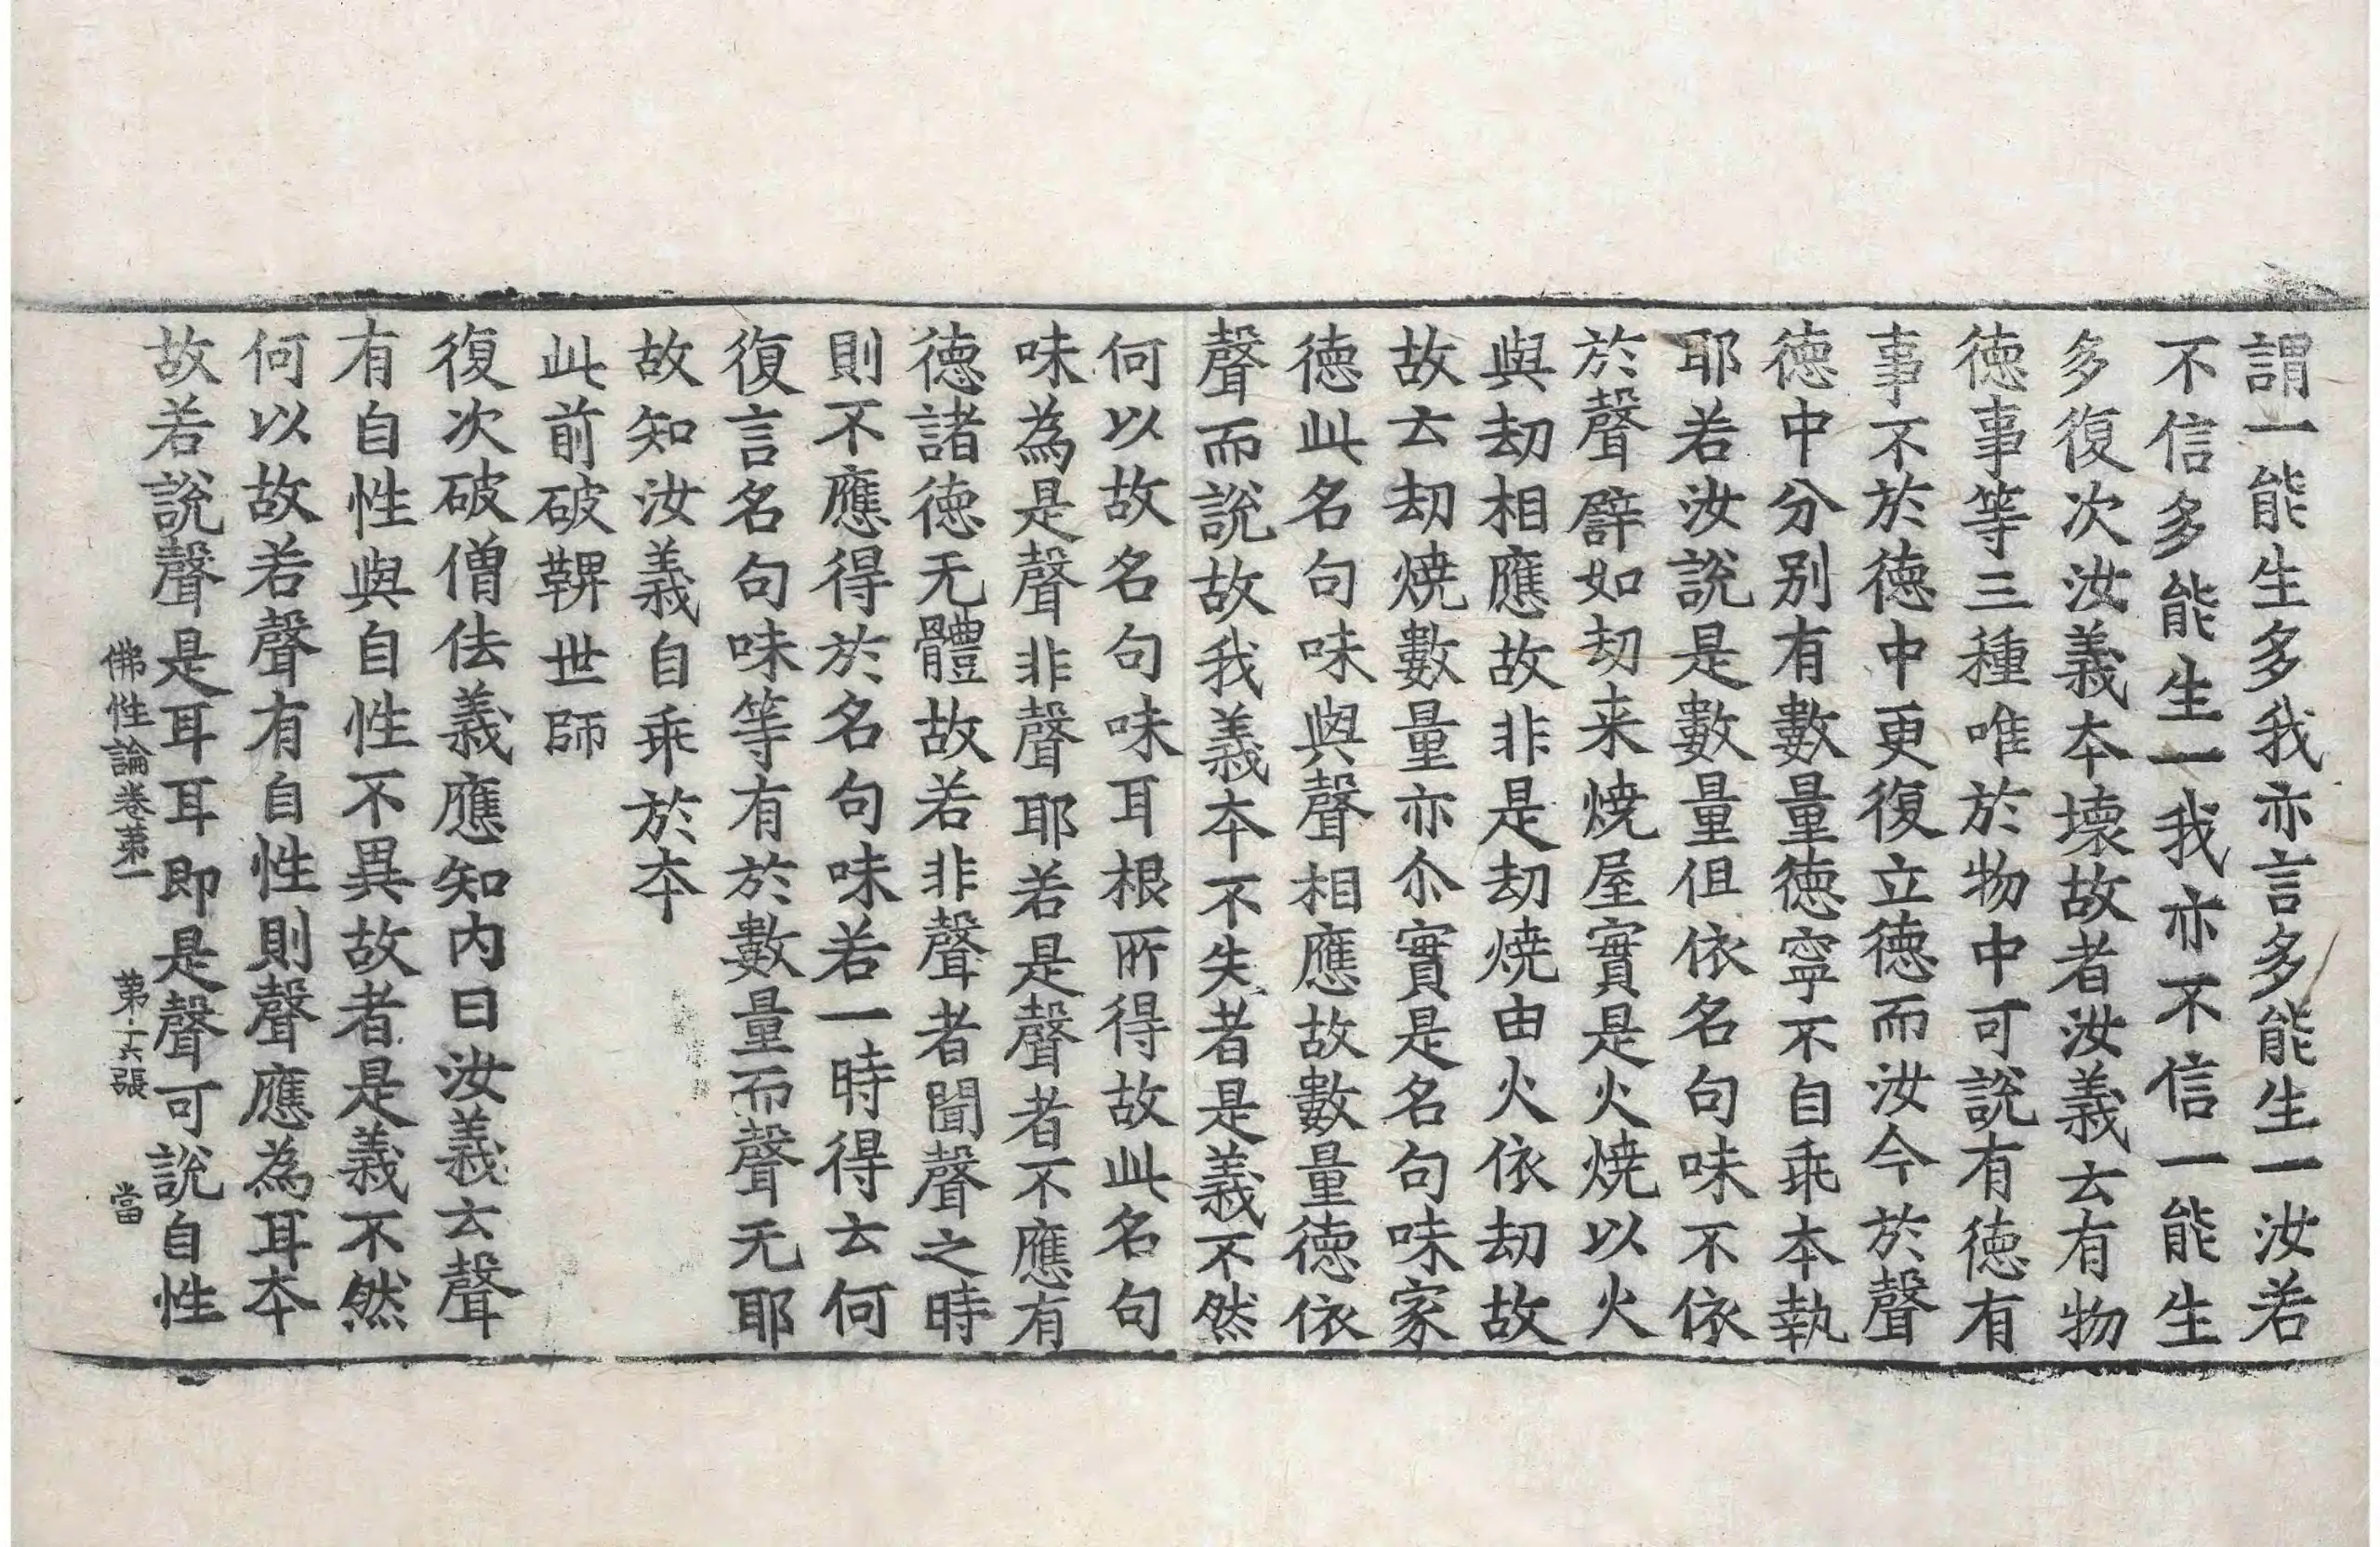 謂一能生多我亦言多能生一汝若
不信多能生一我亦不信一能生
多復次汝義夲壞故者汝義云有物
徳事等三種唯於物中可說有徳有
事不於徳中更復立徳而汝今於聲
徳中分别有數量徳寧不自乖夲執
耶若汝說是數量但依名句味不依
於聲譬如刧来焼屋實是火焼以火
與刧相應故非是刧焼由火依刧故
故云刧焼數量亦尒實是名句味家
徳此名句味與聲相應故數量徳依
聲而說故我義夲不失者是義不然
何以故名句味耳根所得故此名句
味為是聲非聲耶若是聲者不應有
徳諸徳无體故若非聲者聞聲之時
則不應得於名句味若一時得云何
復言名句味等有於數量而聲无耶
故知汝義自乖於夲
此前破鞞世師
復次破僧佉義應知内曰汝義云聲
有自性與自性不異故者是義不然
何以故若聲有自性則聲應為耳夲
故若說聲是耳耳即是聲可說自性
佛性論卷苐一　苐十六張　當